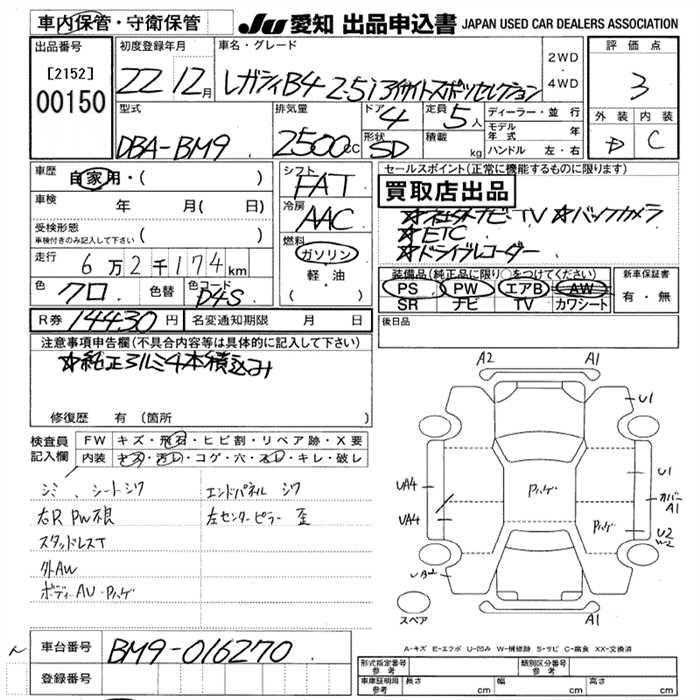 車内保管・守衛保管
JU 愛知 出品申込書 JAPAN USED CAR DEALERS ASSOCIATION
出品番号
[2152]
00150
初度登録年月
22年12月
車名・グレード
レガティB4 2-5i アイサイトスポーツセレクション
2WD
・
4WD
評価点
3
外装 内装
D C
型式
DBA-BM9
排気量
2500cc
ドア 4
形状 SD
定員 5人
積載 kg
ディーラー・並行
モデル年式 年
ハンドル 左・右
車歴 自家用・( )
車検 年 月( 日)
受検形態
車検付きのみ記入して下さい ( )
走行 6万2千174km
色 クロ 色替 色コード D4S
シフト
FAT
冷房
AAC
燃料
ガソリン
・
軽・油
( )
セールスポイント(正常に機能するものに限ります)
買取店出品
☆社外ナビ・TV ☆バックカメラ
☆ETC
☆ドライブレコーダー
装備品(純正品に限り○をつけてください)
PS PW エアB AW
SR ナビ TV カワシート
新車保証書
有・無
R券 14430円 名変通知期限 月 日
後日品
注意事項申告欄(不具合内容等は具体的に記入して下さい)
☆純正アルミ4本積込み
修復歴 有(箇所 )
検査員記入欄
FW キズ・飛石・ヒビ割・リペア跡・X要
内装 キズ・汚レ・コゲ・穴・スレ・キレ・破レ
シミ、シートシワ
右R PW不良
スタッドレスT
外AW
ボディAU・Pハゲ
エンドパネル シワ
左センターピラー 歪
A2 A1
U1
U1
カバーA1
U2
W2
UA4
UA4
UB2
Pハゲ
Pハゲ
A1
スペア
A-キズ E-エクボ U-凹み W-補修跡 S-サビ C-腐食 XX-交換済
車台番号 BM9-016270
登録番号
形式指定番号 参考
類別区分番号 参考
車庫証明用 参考 長さ cm 幅 cm 高さ cm